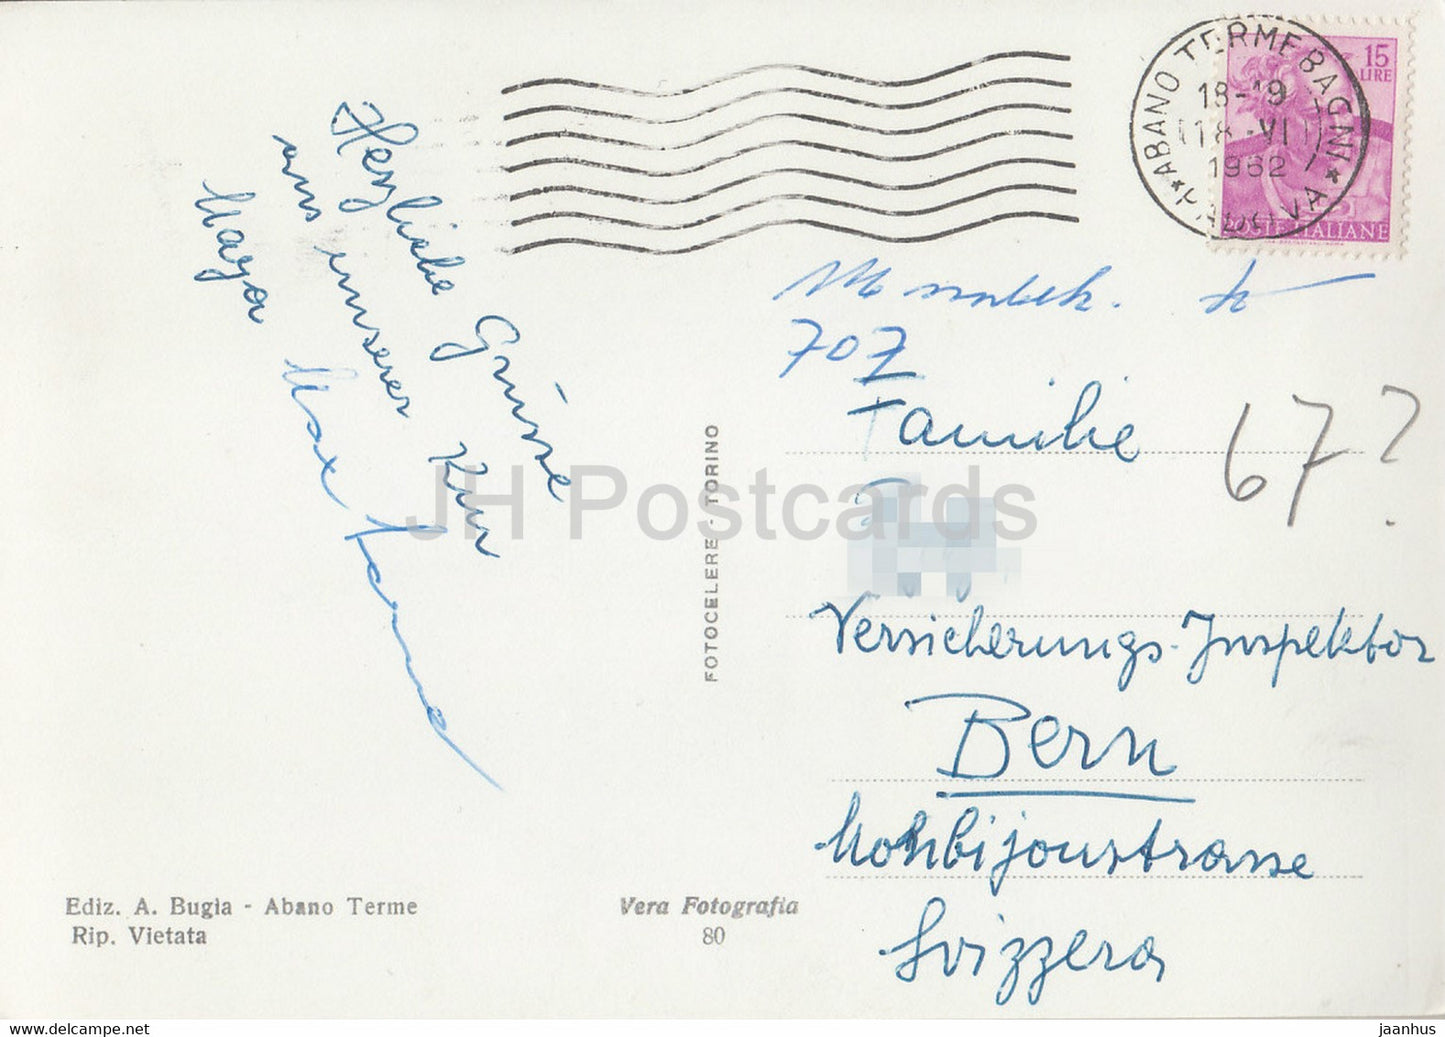 Herzliche Grüsse
aus unserer Kur
Maya Max
Ediz. A. Bugia - Abano Terme
Rip. Vietata
FOTOCELERE - TORINO
Vera Fotografia
80
ABANO TERME BAGNI
PADOVA
18-19
18-VI
1962
15
LIRE
POSTE ITALIANE
707
Familie
67?
Versicherungs-Inspektor
Bern
Monbijoustrasse
Svizzera
JH Postcards
delcampe.net
jaanhus